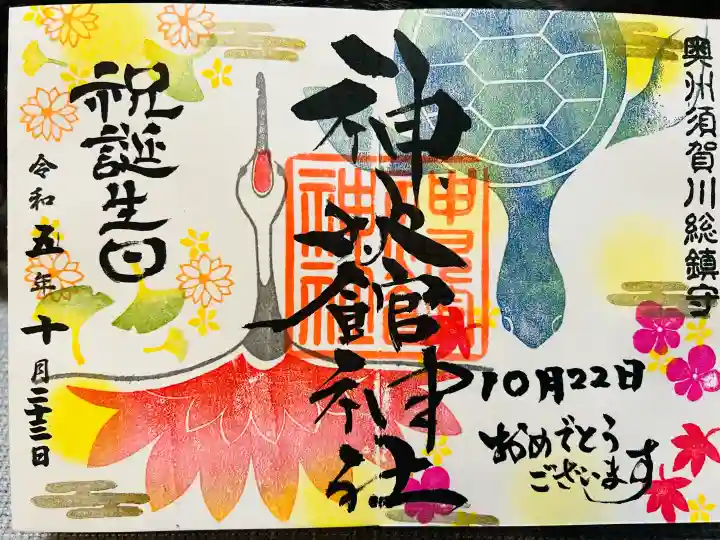 奥州須賀川総鎮守
神炊館神社
10月22日
おめでとう
ございます
祝誕生日
令和五年十月二十二日